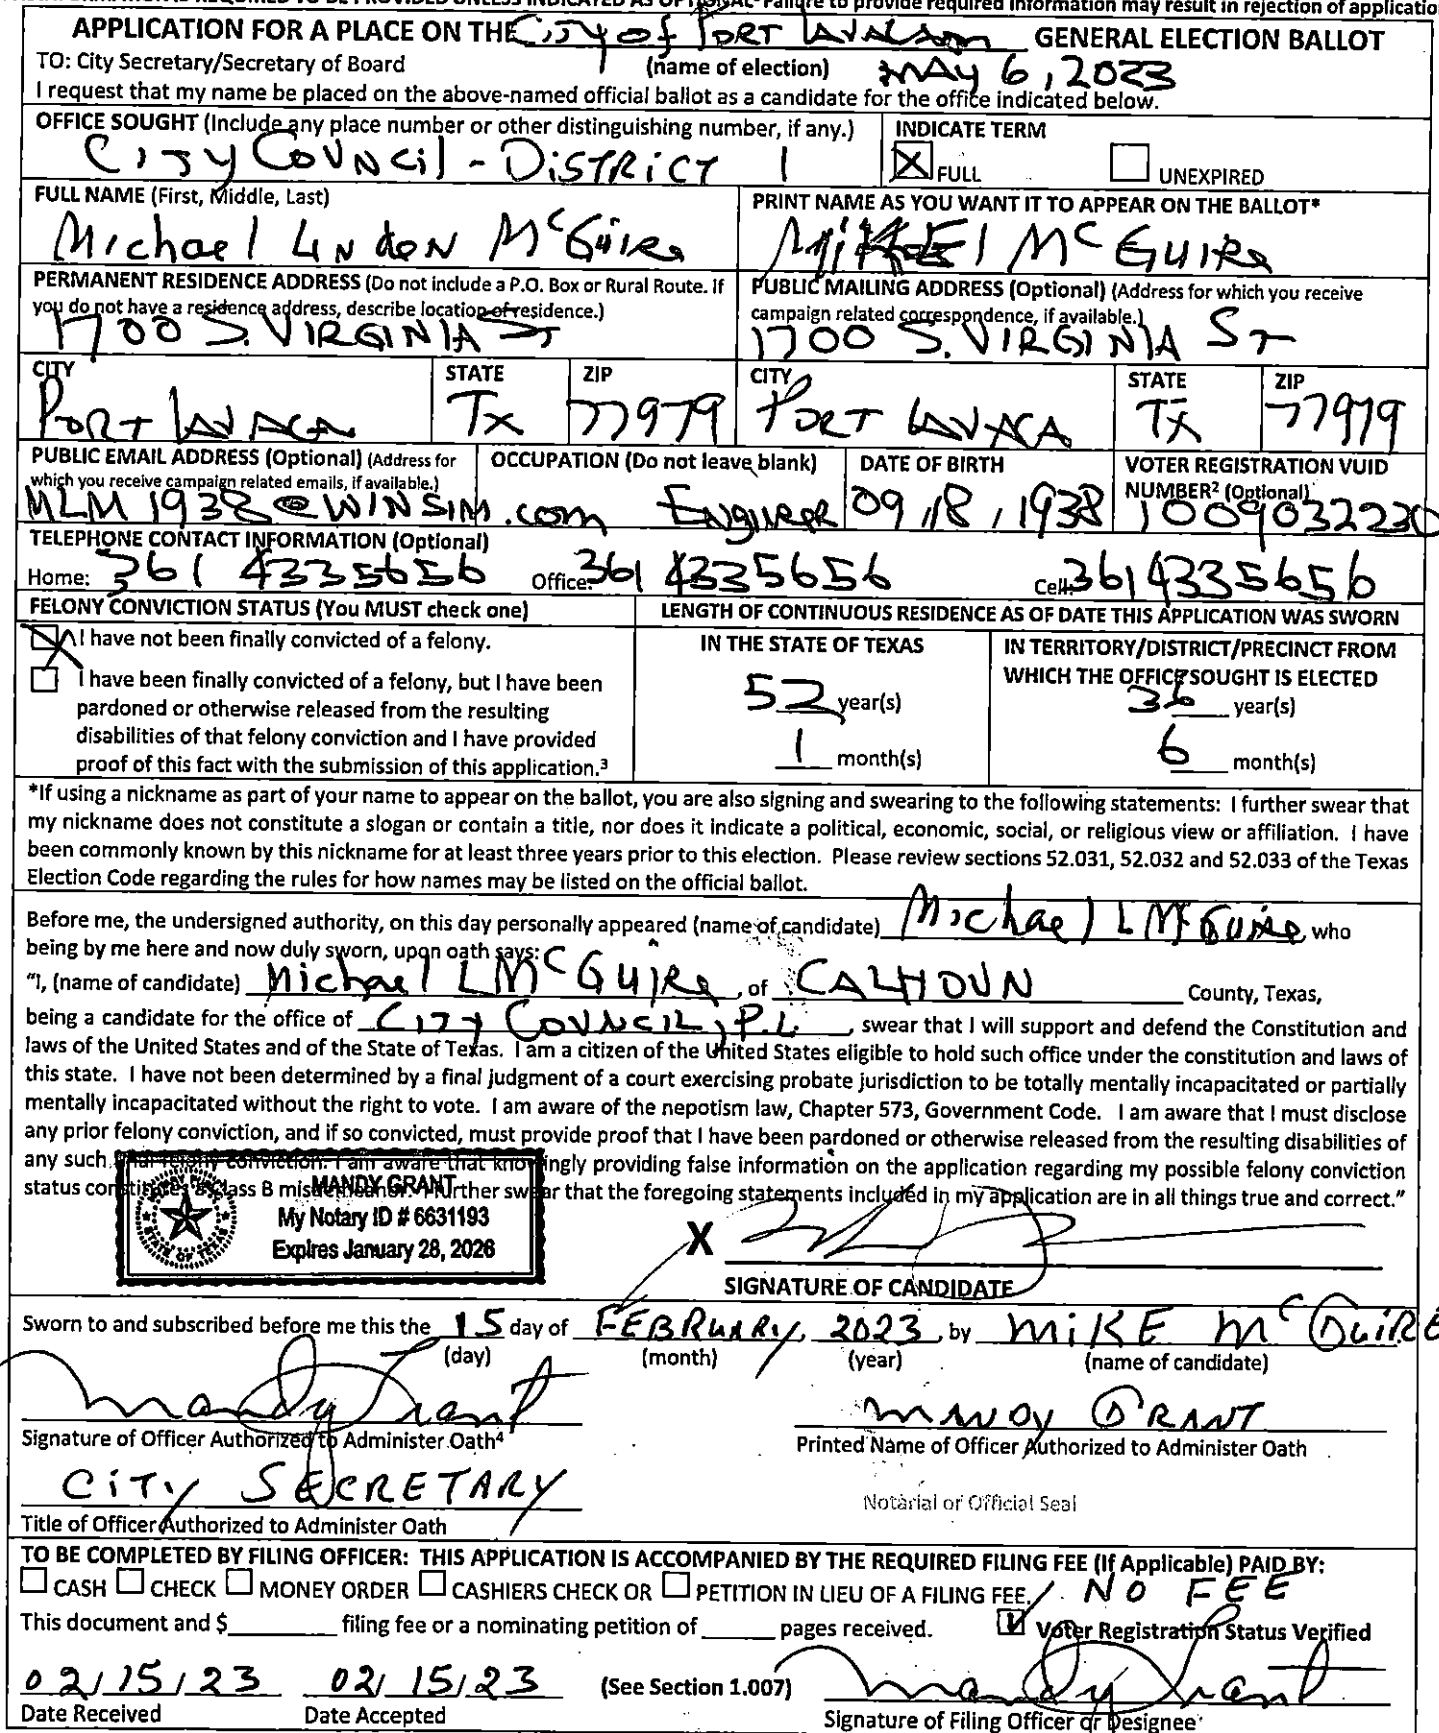 INFORMATION IS REQUIRED TO BE PROVIDED UNLESS INDICATED AS OPTIONAL- Failure to provide required information may result in rejection of application
APPLICATION FOR A PLACE ON THE City of PORT GENERAL ELECTION BALLOT
TO: City Secretary/Secretary of Board (name of election) MAY 6, 2023
I request that my name be placed on the above-named official ballot as a candidate for the office indicated below.
OFFICE SOUGHT (Include any place number or other distinguishing number, if any.) INDICATE TERM
City Council - District 1 FULL UNEXPIRED
FULL NAME (First, Middle, Last) PRINT NAME AS YOU WANT IT TO APPEAR ON THE BALLOT*
Michael McGuire McGuire
PERMANENT RESIDENCE ADDRESS (Do not include a P.O. Box or Rural Route. If you do not have a residence address, describe location of residence.)
1700 S. VIRGINIA ST
PUBLIC MAILING ADDRESS (Optional) (Address for which you receive campaign related correspondence, if available.)
1700 S. VIRGINIA ST
CITY STATE ZIP CITY STATE ZIP
PORT LAVACA TX 77979 PORT LAVACA TX 77979
PUBLIC EMAIL ADDRESS (Optional) (Address for which you receive campaign related emails, if available.) OCCUPATION (Do not leave blank) DATE OF BIRTH VOTER REGISTRATION VUID NUMBER² (Optional)
MLM1938@WINSIM.com Engineer 09/18/1938 1009032230
TELEPHONE CONTACT INFORMATION (Optional)
Home: 361 4335656 Office: 361 4335656 Cell: 361 4335656
FELONY CONVICTION STATUS (You MUST check one) LENGTH OF CONTINUOUS RESIDENCE AS OF DATE THIS APPLICATION WAS SWORN
I have not been finally convicted of a felony.
I have been finally convicted of a felony, but I have been
pardoned or otherwise released from the resulting
disabilities of that felony conviction and I have provided
proof of this fact with the submission of this application.³
IN THE STATE OF TEXAS
52 year(s)
1 month(s)
IN TERRITORY/DISTRICT/PRECINCT FROM
WHICH THE OFFICE SOUGHT IS ELECTED
36 year(s)
6 month(s)
*If using a nickname as part of your name to appear on the ballot, you are also signing and swearing to the following statements: I further swear that
my nickname does not constitute a slogan or contain a title, nor does it indicate a political, economic, social, or religious view or affiliation. I have
been commonly known by this nickname for at least three years prior to this election. Please review sections 52.031, 52.032 and 52.033 of the Texas
Election Code regarding the rules for how names may be listed on the official ballot.
Before me, the undersigned authority, on this day personally appeared (name of candidate) Michael L McGuire who
being by me here and now duly sworn, upon oath says:
"I, (name of candidate) Michael L McGuire, of CALHOUN County, Texas,
being a candidate for the office of City Council, P.L., swear that I will support and defend the Constitution and
laws of the United States and of the State of Texas. I am a citizen of the United States eligible to hold such office under the constitution and laws of
this state. I have not been determined by a final judgment of a court exercising probate jurisdiction to be totally mentally incapacitated or partially
mentally incapacitated without the right to vote. I am aware of the nepotism law, Chapter 573, Government Code. I am aware that I must disclose
any prior felony conviction, and if so convicted, must provide proof that I have been pardoned or otherwise released from the resulting disabilities of
any such final felony conviction. I am aware that knowingly providing false information on the application regarding my possible felony conviction
status constitutes a Class B misdemeanor. I further swear that the foregoing statements included in my application are in all things true and correct."
MANDY GRANT
My Notary ID # 6631193
Expires January 28, 2026
STATE OF TEXAS
X
SIGNATURE OF CANDIDATE
Sworn to and subscribed before me this the 15 day of FEBRUARY, 2023, by MIKE McGUIRE
(day) (month) (year) (name of candidate)
Mandy Grant MANDY GRANT
Signature of Officer Authorized to Administer Oath⁴ Printed Name of Officer Authorized to Administer Oath
CITY SECRETARY
Notarial or Official Seal
Title of Officer Authorized to Administer Oath
TO BE COMPLETED BY FILING OFFICER: THIS APPLICATION IS ACCOMPANIED BY THE REQUIRED FILING FEE (If Applicable) PAID BY:
CASH CHECK MONEY ORDER CASHIERS CHECK OR PETITION IN LIEU OF A FILING FEE. NO FEE
This document and $ filing fee or a nominating petition of pages received. Voter Registration Status Verified
02/15/23 02/15/23 (See Section 1.007) Mandy Grant
Date Received Date Accepted Signature of Filing Officer or Designee